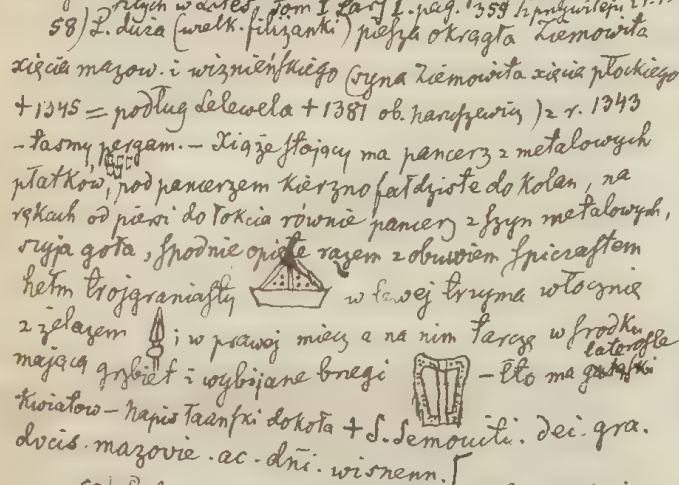 Tom I Części I. pag. 1359
58) L. duża (wielk. filiżanki) piesza okrągła Ziemowita
xięcia mazow. i wiznieńskiego (syna Ziemowita xięcia płockiego
+ 1345 = podług Lelewela + 1381 ob. Naruszewicz) z r. 1343
– taśmy pergam. – Xiąże stojący ma pancerz z metalowych
płatków, pod pancerzem kierzno fałdziste do kolan, na
rękach od piersi do łokcia równie pancerz z szyn metalowych,
szyja goła, spodnie opięte razem z obuwiem spiczastem
hełm trojgraniasty w lewej trzyma włócznię
z żelazem ; w prawej miecz a na nim tarczę w środku
mającą grzbiet i wybijane brzegi – tło ma latorośle
kwiatow – napis łaciński dokoła + S. Semoviti. dei. gra.
dvcis. mazovie. ac. dñi. wisnenn.